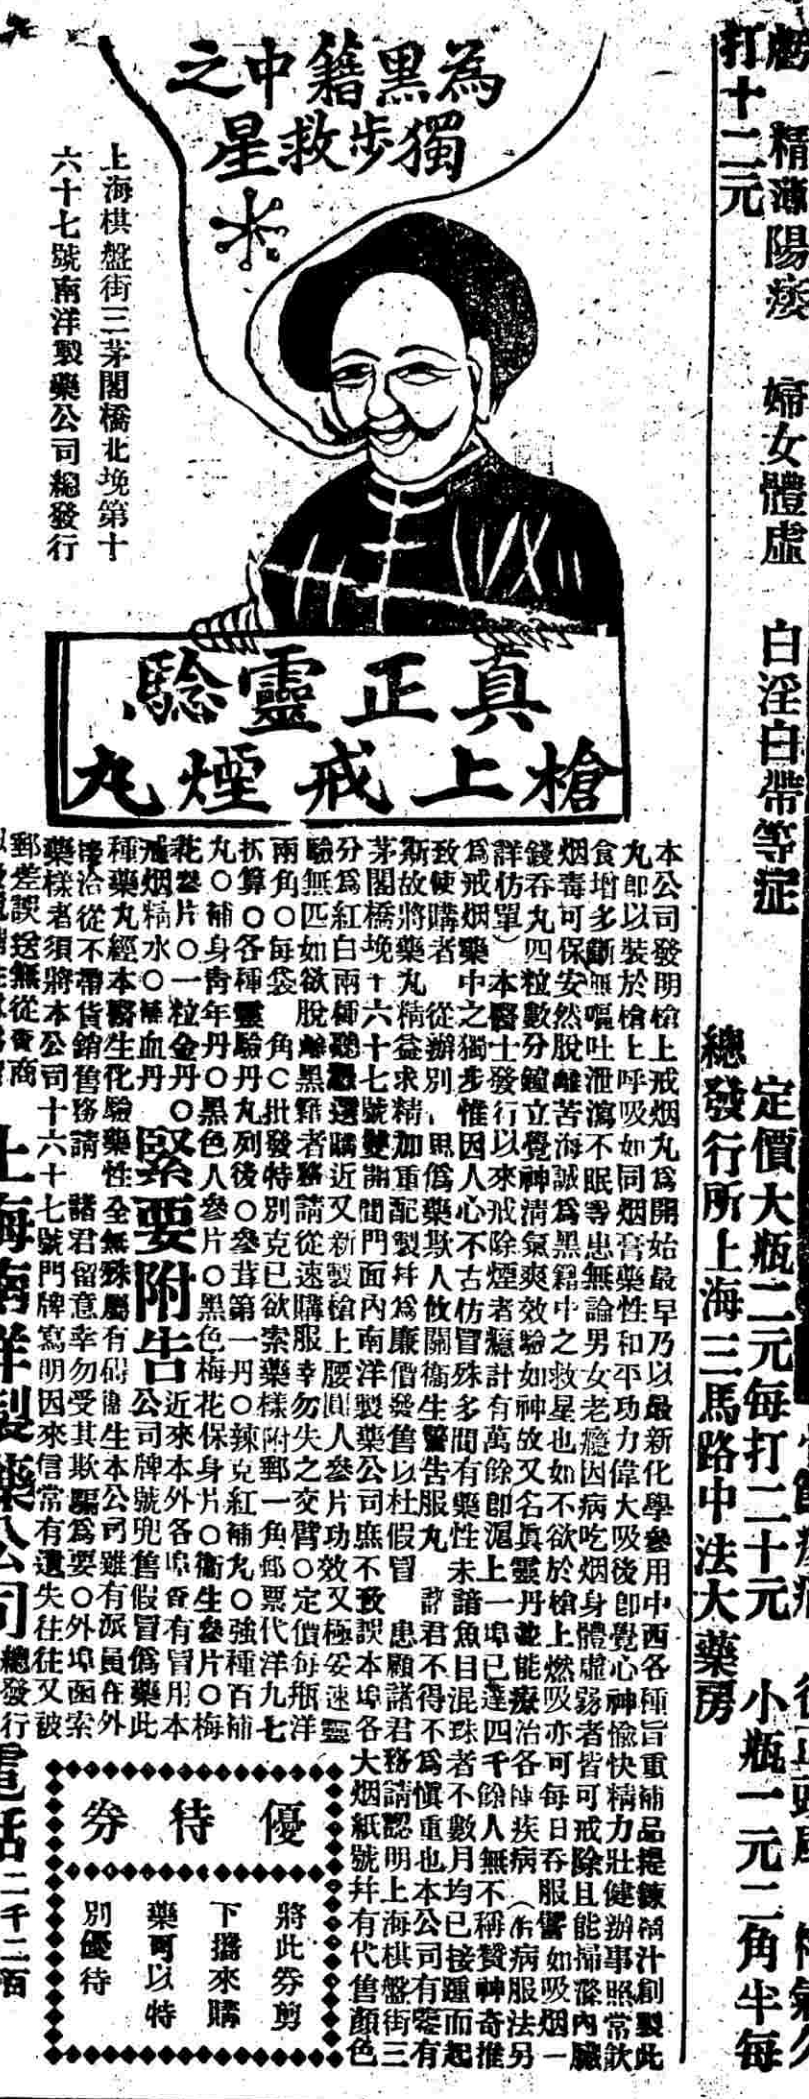 精薄陽痿 婦女體虛 白淫白帶等症
定價大瓶二元每打二十元 小瓶一元二角半每
打十二元
總發行所上海三馬路中法大藥房
為黑籍中之
獨步救星
上海棋盤街三茅閣橋北堍第十
六十七號南洋製藥公司總發行
真正靈騐
槍上戒煙丸
本公司發明槍上戒烟丸爲開始最早乃以最新化學參用中西各種旨重補品提鍊稱汁創製此
丸卽以裝於槍上呼吸如同烟膏藥性和平功力偉大吸後卽覺心神愉快精力壯健辦事照常飲
食增多斷無嘔吐泄瀉不眠等患無論男女老癮因病吃烟身體虛弱者皆可戒除且能掃滌內臟
烟毒可保安然脫離苦海誠爲黑籍中之救星也如不欲於槍上燃吸亦可每日吞服譬如吸烟一
錢吞丸四粒數分鐘立覺神清氣爽效驗如神故又名眞靈丹並能療治各種疾病（病服法另
詳仿單）本醫士發行以來戒除煙者癮計有萬餘卽滬上一埠已達四千餘人無不稱贊神奇推
爲戒烟藥中之獨步惟因人心不古仿冒殊多間有藥性未諳魚目混珠者不數月均已接踵而起
致使購者 從辦別 僞藥欺人攸關衞生警告服丸 諸君不得不爲愼重也本公司有鑒有
斯故將藥丸精益求精加重配製幷爲廉價發售以杜假冒 患顧諸君務請認明上海棋盤街三
茅閣橋堍十六十七號雙開間門面內南洋製藥公司庶不致誤本埠各大烟紙號幷有代售顏色
分爲紅白兩種聽憑選購近又新製槍上腰圓人參片功效又極妥速靈
驗無匹如欲脫離黑籍者務請從速購服幸勿失之交臂○定價每瓶洋
兩角○每袋 角○批發特別克已欲索藥樣附郵一角郵票代洋九七
扨算○各種靈驗丹丸列後○參茸第一丹○辣克紅補丸○強種百補
丸○補身靑年丹○黑色人參片○黑色梅花保身片○衞生參片○梅
花參片○一粒金丹○
戒烟精水○補血丹
緊要附告
近來本外各埠 有冒用本
公司牌號兜售假冒僞藥此
種藥丸經本醫生化驗藥性全無殊屬有碍衞生本公司雖有派員在外
接洽從不帶貨銷售務請 諸君留意幸勿受其欺騙爲要○外埠函索
藥樣者須將本公司十六十七號門牌寫明因來信常有遺失往往又被
郵差誤送無從
上海南洋製藥公司總發行
電話二千二百
優待券
將此券剪
下擕來購
藥可以特
別優待